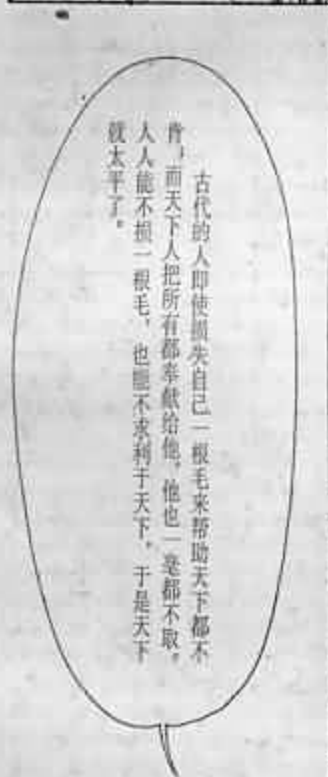 古代的人即使损失自己一根毛来帮助天下都不
肯，而天下人把所有都奉献给他，他也一毫都不取。
人人能不损一根毛，也能不求利于天下，于是天下
就太平了。